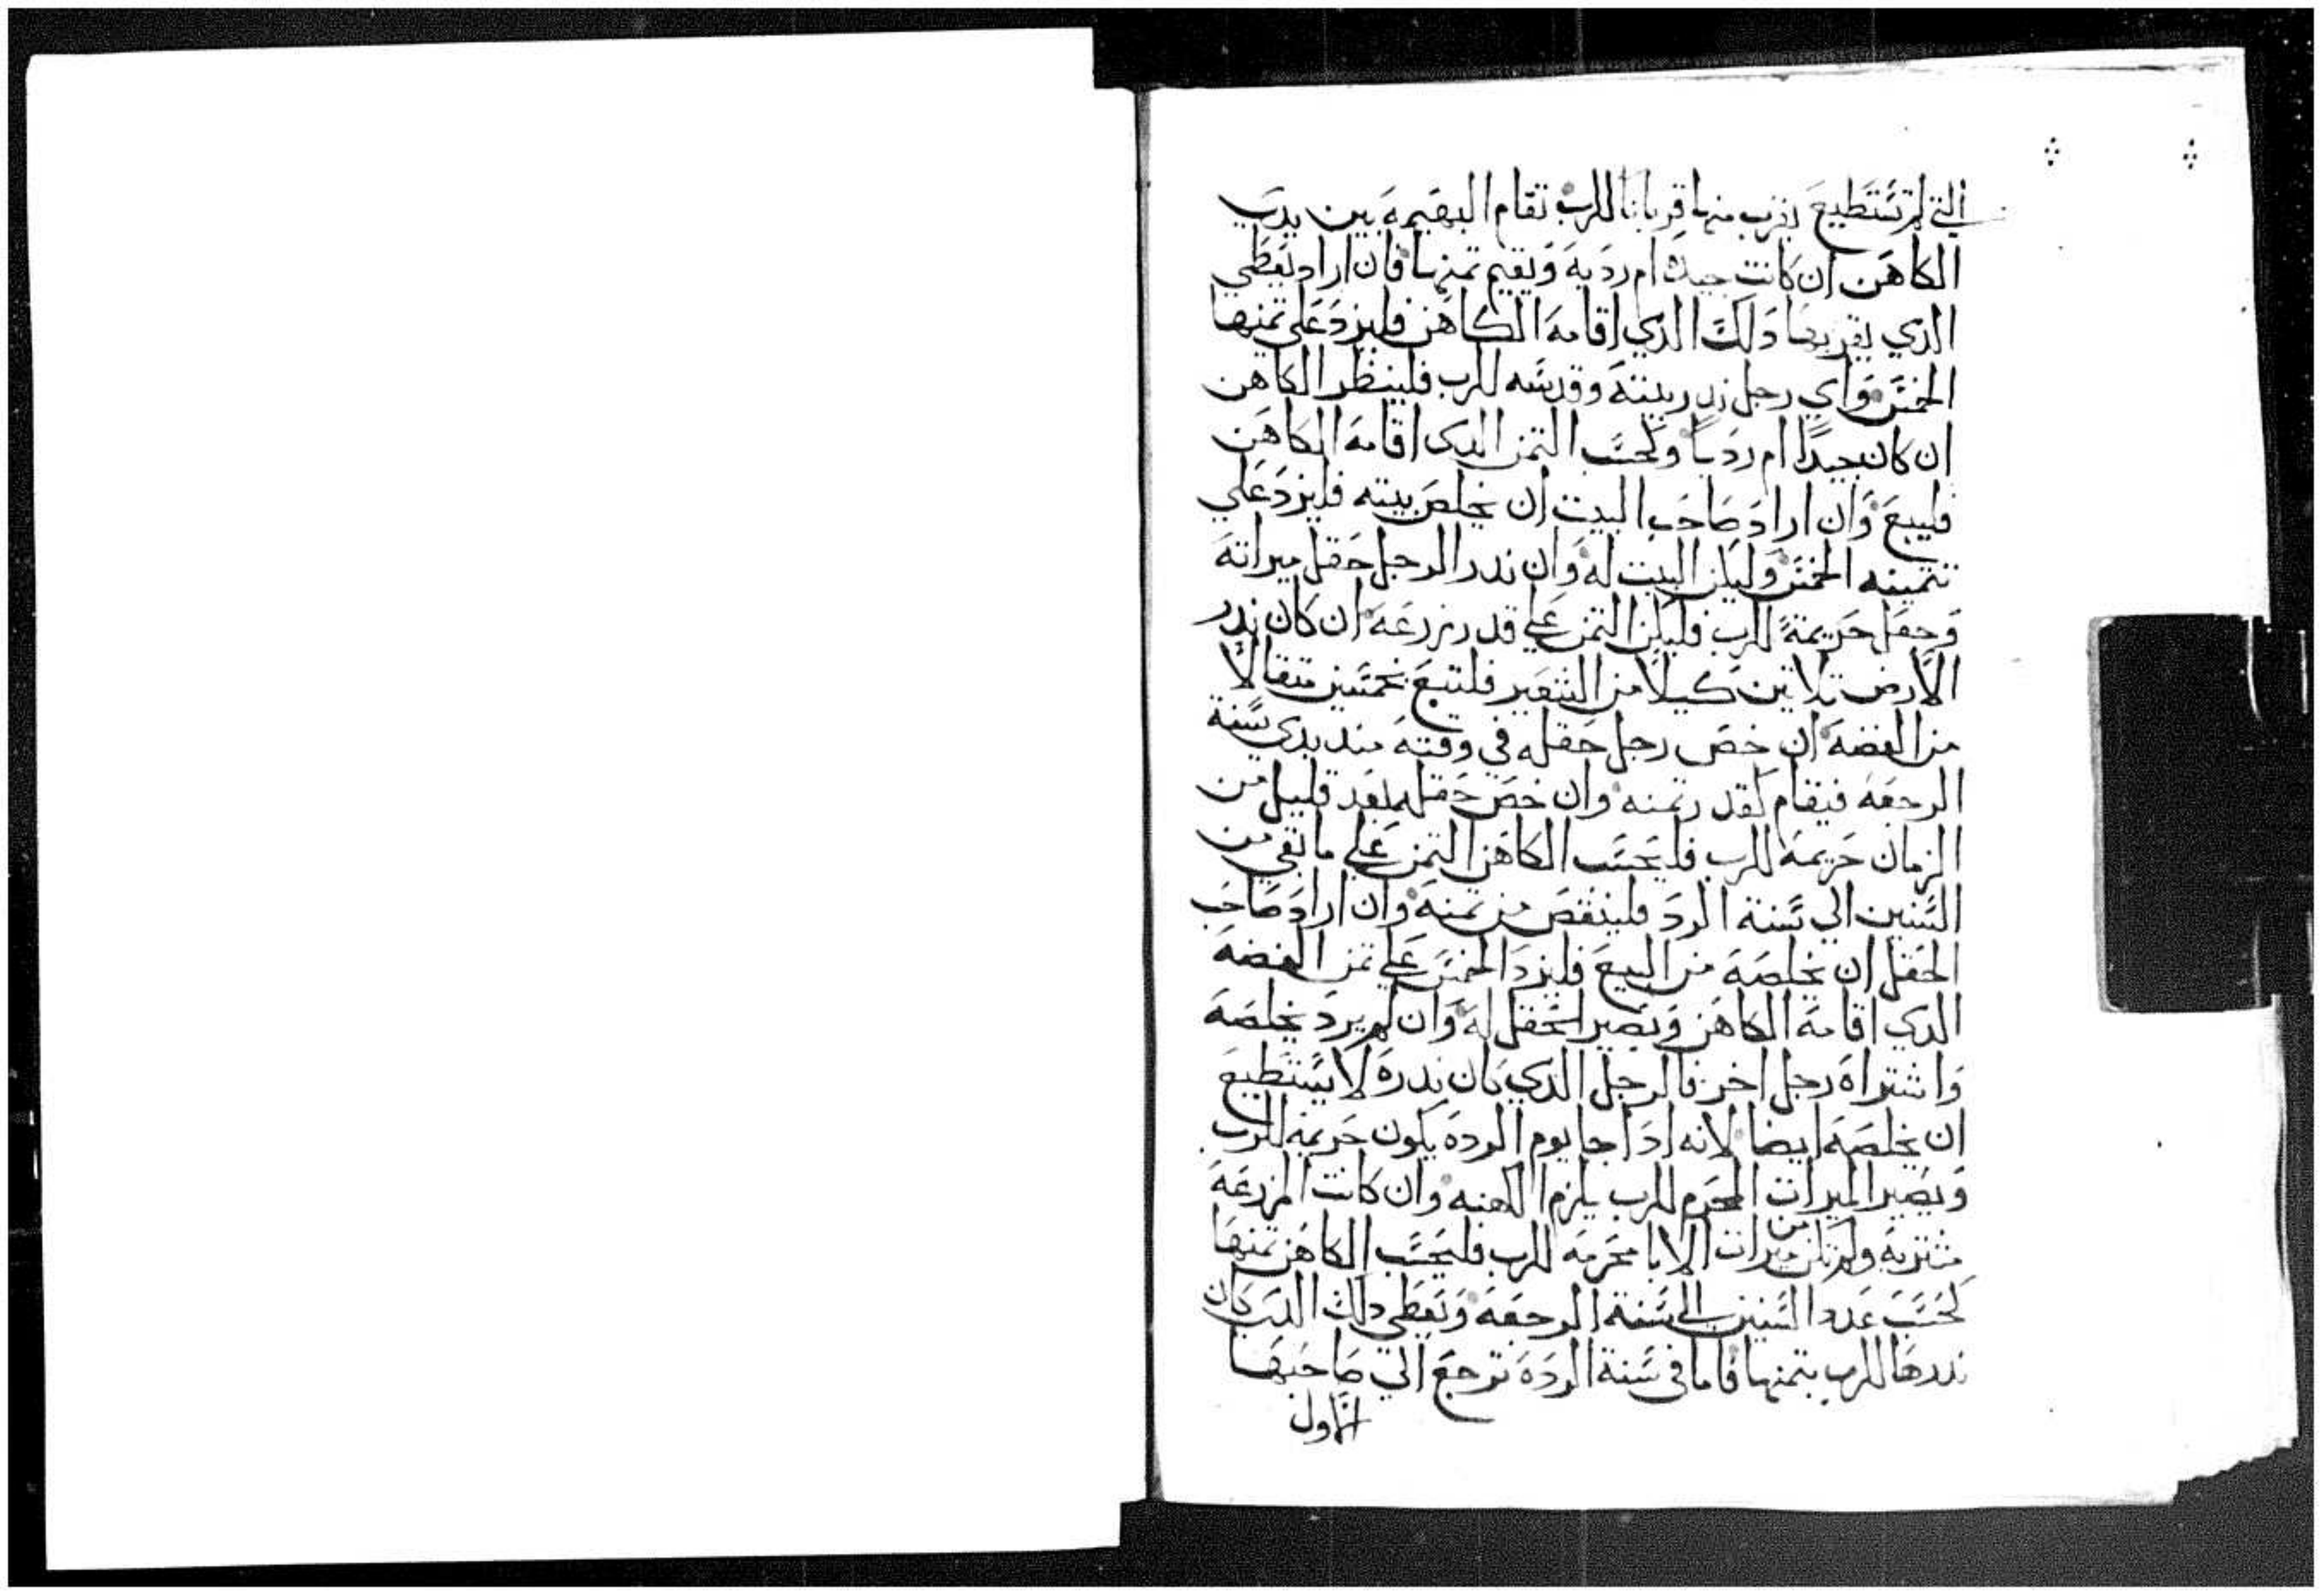 التي لم تستطيع يقرب منها قربانا للرب تقام البهيمة بين يدي
الكاهن ان كانت جيدة ام ردية ويقيم تمنها فان اراد يعطي
الذي يقربها دلك الذي اقامه الكاهن فليزد على تمنها
الخمس واي رجل ندر بيته وقدسه للرب فلينظر الكاهن
ان كان جيدًا ام رديا وكحسب التمن الدي اقامه الكاهن
فليبع وان اراد صاحب البيت ان يخلص بيته فليزد علي
تتمينه الخمس وليكن البيت له وان ندر الرجل حقل ميراته
وجعل حريمة للرب فليكن التمن علي قدر زرعه ان كان بدر
الارض تلاتين كيلا من الشعير فلتبع بخمسين متقالا
من الفضه ان خص رجل حقله في وقته مند بدي سنة
الرجعه فيقام كقدر تمنه وان خص حقله بعد قليل من
الزمان حريمه للرب فليحسب الكاهن التمن علي ما تبقي من
السنين الي سنة الرد فلينقص من تمنه وان اراد صاحب
الحقل ان يخلصه من البيع فليزد الخمس علي تمن الفضه
الدي اقامه الكاهن ويصير الحقل له وان لم يرد يخلصه
واشتراه رجل اخر فالرجل الذي كان ندره لا يستطيع
ان يخلصه ايضا لانه ادا جا يوم الرده يكون حريمه للرب
ويصير الميرات المحرم للرب يلزم الكهنه وان كانت المزرعه
مشتريه ولم تكن من ميرات الابا محرمه للرب فليحسب الكاهن تمنها
كحسب عدد السنين الي سنة الرجعه ويعطي دلك الدي كان
ندرها للرب بتمنها فاما في سنة الرده ترجع الي صاحبها
الاول